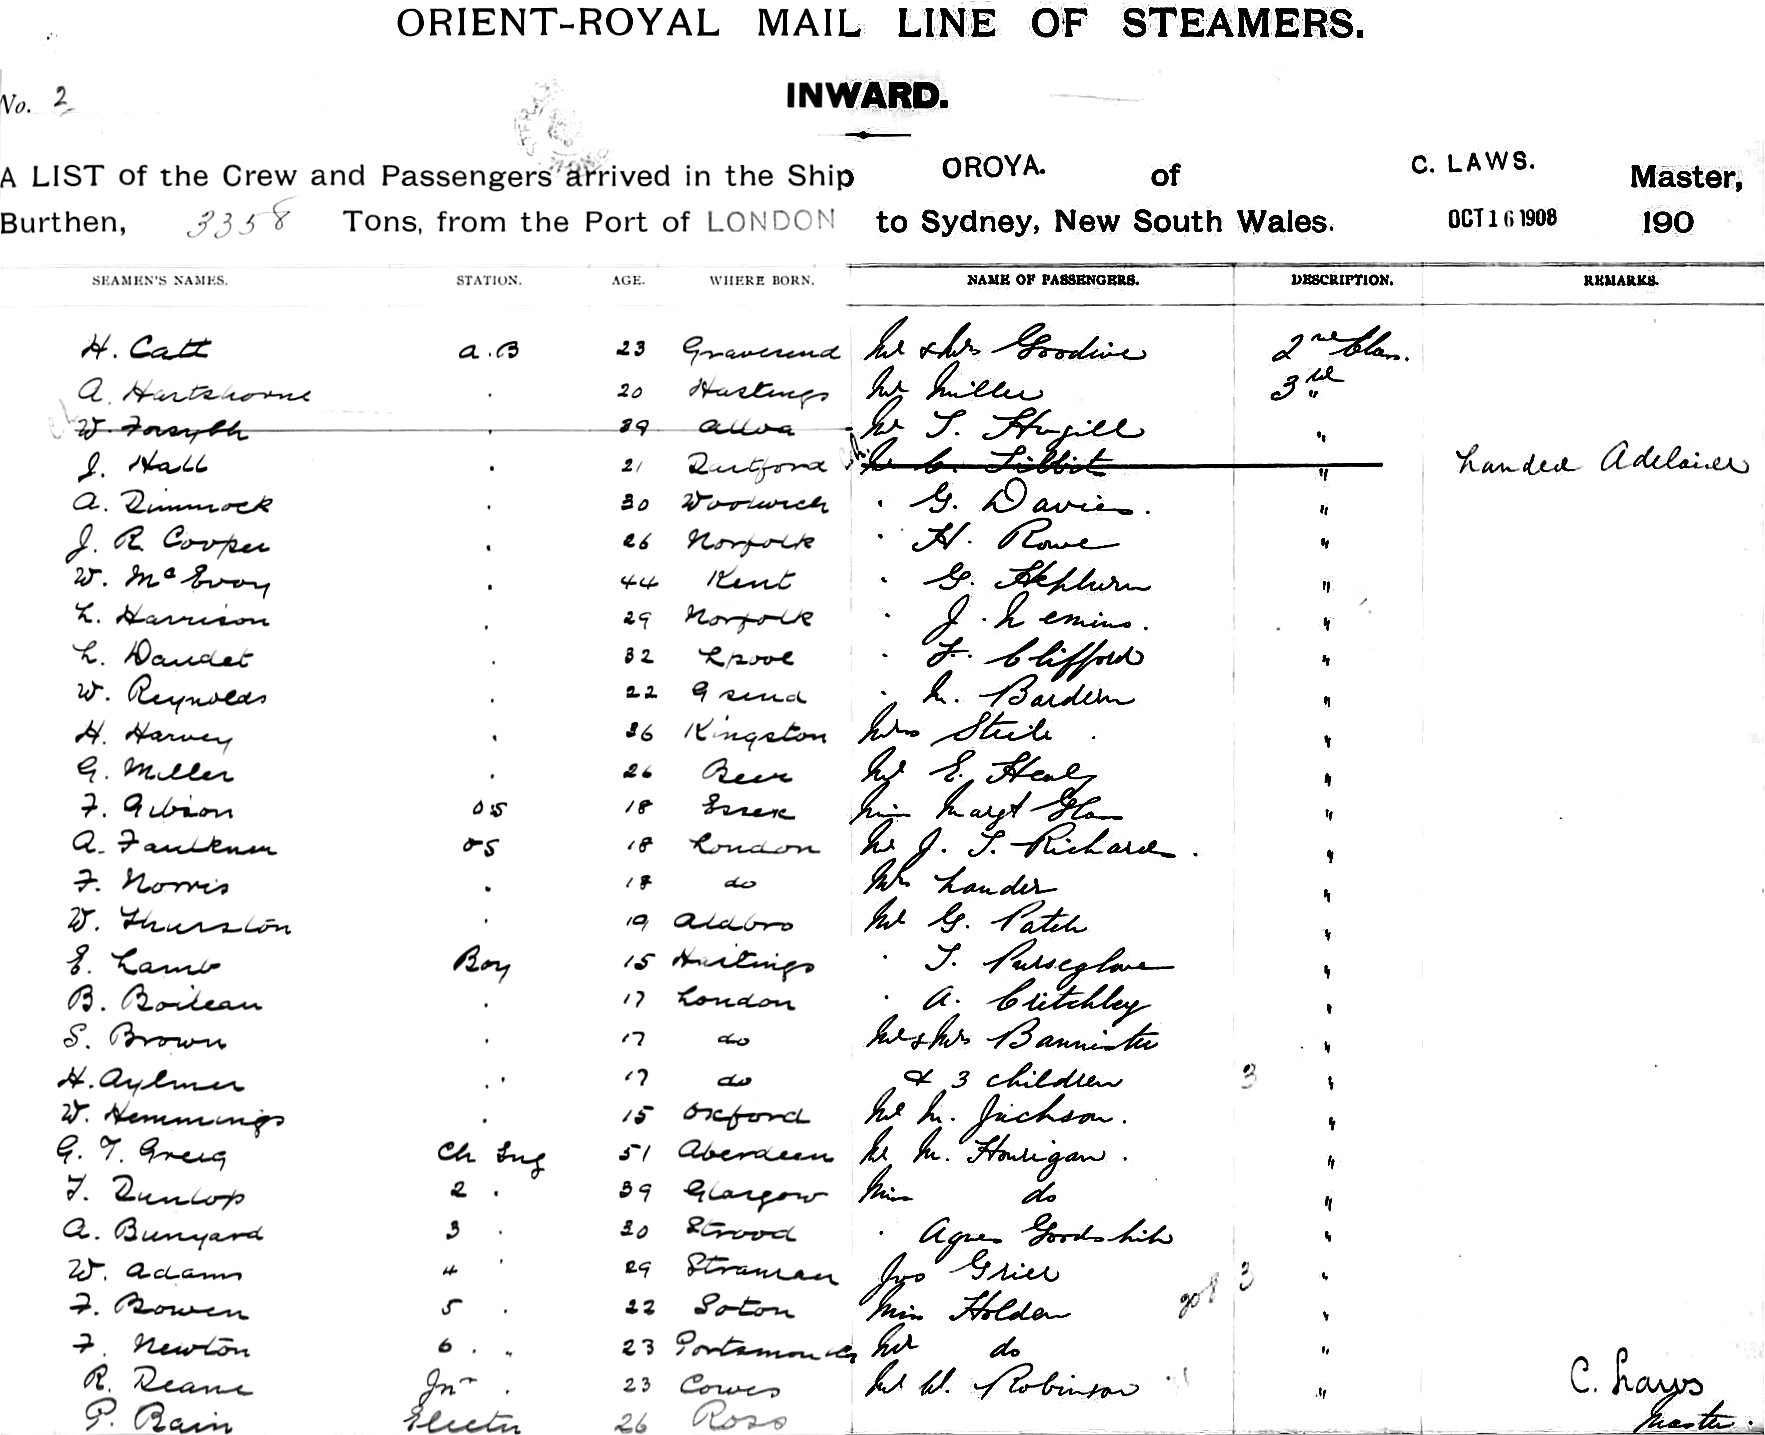 ORIENT-ROYAL MAIL LINE OF STEAMERS.
No. 2
INWARD.
A LIST of the Crew and Passengers arrived in the Ship OROYA. of C. LAWS. Master,
Burthen, 3358 Tons, from the Port of LONDON to Sydney, New South Wales. OCT 16 1908 190
SEAMEN'S NAMES. STATION. AGE. WHERE BORN. NAME OF PASSENGERS. DESCRIPTION. REMARKS.
H. Catt a.B 23 Gravesend Mr & Mrs Goodive 2nd Class.
A. Hartshorne . 20 Hastings Mr Miller 3rd "
W. Forsyth . 39 Alloa Mr T. Hugill "
J. Hall . 21 Dartford Mr C. Tibbit " Landed Adelaide
A. Dimmock . 30 Woolwich . G. Davies. "
J. R. Cooper . 26 Norfolk . H. Rowe "
W. McEvoy . 44 Kent . G. Hepburn "
L. Harrison . 29 Norfolk . J. "
L. Daudet . 32 Lpool . F. Clifford "
W. Reynolds . 22 Gsend . M. Bardem "
H. Harvey . 36 Kingston Mrs Steile . "
G. Miller . 26 Beer Mr E. Healy "
F. Gibson OS 18 Essex Miss Margt "
A. Faulkner OS 18 London Mr J. T. Richards. "
F. Norris . 18 do Mrs Lander "
W. Thurston . 19 Aldbro Mr G. Patch "
E. Lamb Boy 15 Hastings . T. Purseglove "
B. Boileau . 17 London . A. Critchley "
S. Brown . 17 do Mr & Mrs Bannister "
H. Aylmer . 17 do & 3 children 3 "
W. Hemmings . 15 Oxford Mr M. Jackson. "
G. T. Greig Ch Eng 51 Aberdeen Mr M. Hourigan. "
T. Dunlop 2 . 39 Glasgow Miss do "
A. Bunyard 3 . 30 Strood . Agnes "
W. Adams 4 ' 29 Jno Grier 3 "
F. Bowen 5 . 22 Soton Miss Holden "
F. Newton 6 . " 23 Portsmouth Mr do "
R. Deane Jnr . 23 Cowes Mr W. Robinson " C. Laws
P. Bain Electn 26 Ross Master.